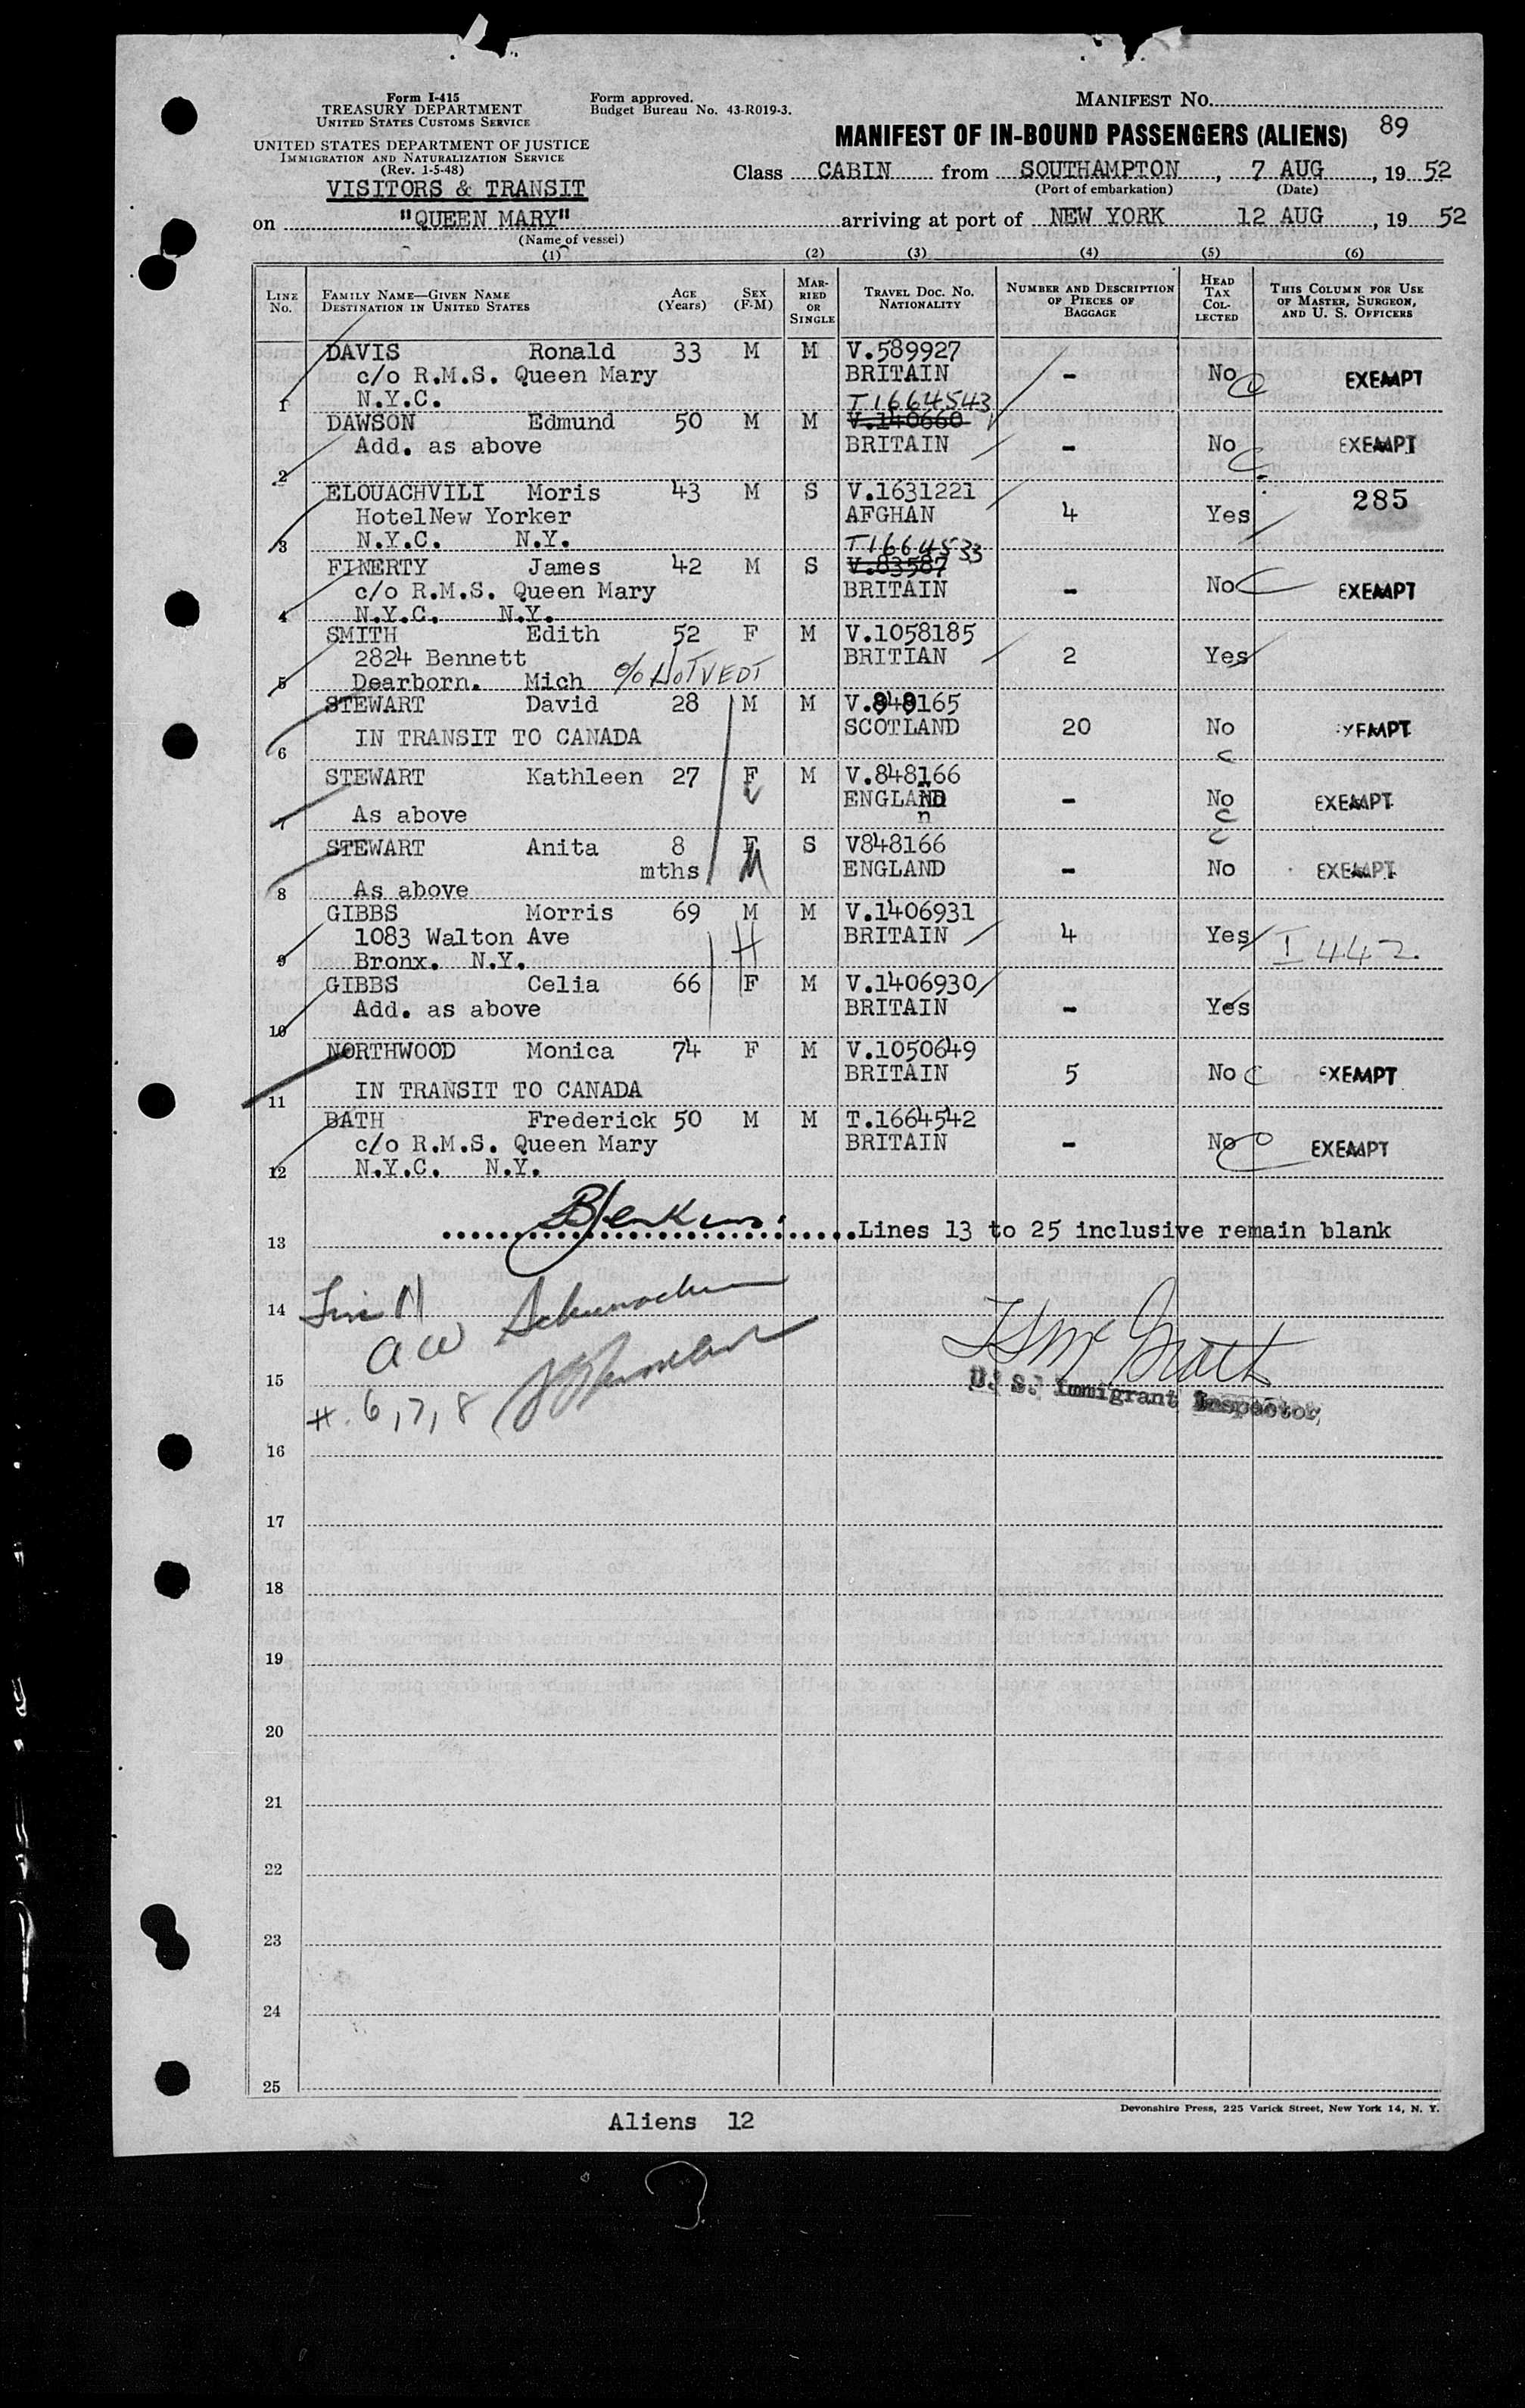 Form I-415
TREASURY DEPARTMENT
UNITED STATES CUSTOMS SERVICE
UNITED STATES DEPARTMENT OF JUSTICE
IMMIGRATION AND NATURALIZATION SERVICE
(Rev. 1-5-48)
VISITORS & TRANSIT
Form approved.
Budget Bureau No. 43-R019-3.
MANIFEST No.
MANIFEST OF IN-BOUND PASSENGERS (ALIENS) 89
Class CABIN from SOUTHAMPTON, 7 AUG, 1952
(Port of embarkation) (Date)
on "QUEEN MARY" arriving at port of NEW YORK 12 AUG, 1952
(Name of vessel)
(1) (2) (3) (4) (5) (6)
LINE No. FAMILY NAME—GIVEN NAME DESTINATION IN UNITED STATES AGE (Years) SEX (F-M) MARRIED OR SINGLE TRAVEL DOC. NO. NATIONALITY NUMBER AND DESCRIPTION OF PIECES OF BAGGAGE HEAD TAX COLLECTED THIS COLUMN FOR USE OF MASTER, SURGEON, AND U. S. OFFICERS
DAVIS Ronald 33 M M V.589927
c/o R.M.S. Queen Mary BRITAIN - No EXEMPT
1 N.Y.C.
T1664543
DAWSON Edmund 50 M M V.140660
Add. as above BRITAIN - No EXEMPT
2
ELOUACHVILI Moris 43 M S V.1631221 285
HotelNew Yorker AFGHAN 4 Yes
3 N.Y.C. N.Y.
T1664533
FINERTY James 42 M S V.83587
c/o R.M.S. Queen Mary BRITAIN - No EXEMPT
4 N.Y.C. N.Y.
SMITH Edith 52 F M V.1058185
2824 Bennett BRITIAN 2 Yes
5 Dearborn. Mich c/o HOTVEDT
STEWART David 28 M M V.848165
SCOTLAND 20 No EXEMPT
6 IN TRANSIT TO CANADA
STEWART Kathleen 27 F M V.848166
ENGLAND - No EXEMPT
7 As above
STEWART Anita 8 F S V848166
mths M ENGLAND - No EXEMPT
8 As above
GIBBS Morris 69 M M V.1406931
1083 Walton Ave H BRITAIN 4 Yes I 442
9 Bronx. N.Y.
GIBBS Celia 66 F M V.1406930
Add. as above BRITAIN - Yes
10
NORTHWOOD Monica 74 F M V.1050649
BRITAIN 5 No C EXEMPT
11 IN TRANSIT TO CANADA
BATH Frederick 50 M M T.1664542
c/o R.M.S. Queen Mary BRITAIN - No EXEMPT
12 N.Y.C. N.Y.
13 Lines 13 to 25 inclusive remain blank
14
15
U. S. Immigrant Inspector
#. 6, 7, 8
16
17
18
19
20
21
22
23
24
25
Devonshire Press, 225 Varick Street, New York 14, N. Y.
Aliens 12